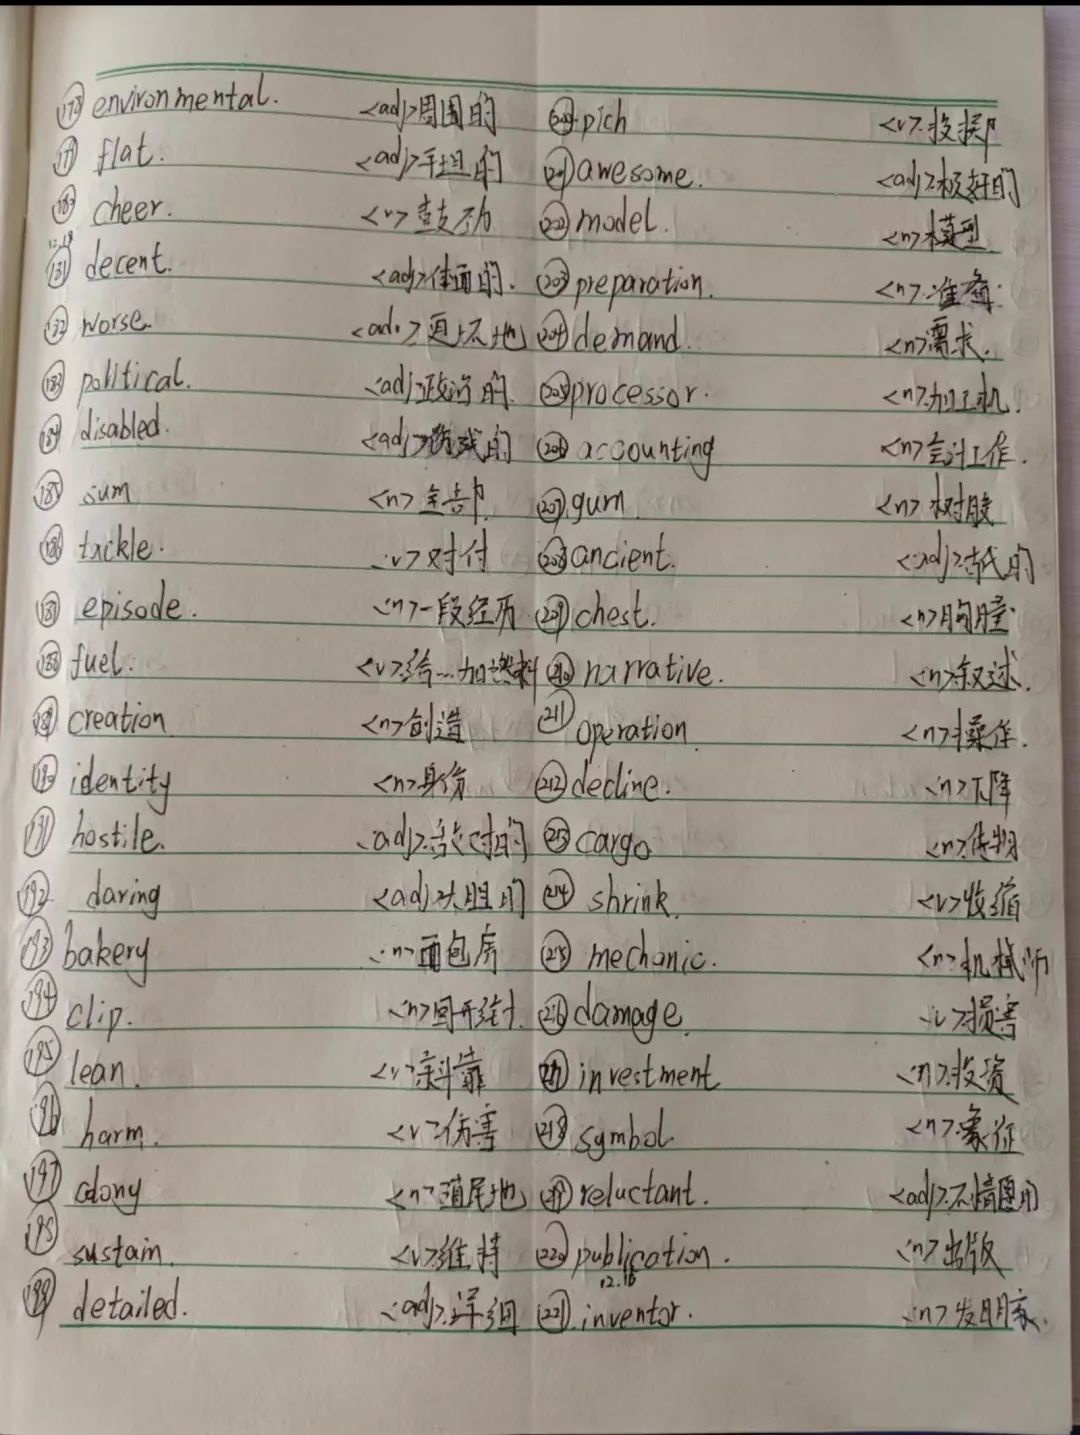 178 environmental. <adj>周围的
179 flat. <adj>平坦的
180 cheer. <v>鼓励
12.18
181 decent. <adj>体面的.
182 worse. <ad.>更坏地
183 political. <adj>政治的.
184 disabled. <adj>伤残的
185 sum <n>全部.
186 tackle. <v>对付
187 episode. <n>一段经历
188 fuel. <v>给...加燃料
189 creation <n>创造
190 identity <n>身份
191 hostile. <adj>敌对的
192 daring <adj>大胆的
193 bakery <n>面包房
194 clip. <n>回形针.
195 lean. <v>斜靠
196 harm. <v>伤害
197 colony <n>殖民地
198 sustain. <v>维持
199 detailed. <adj>详细
200 pich <v>.投掷
201 awesome. <adj>极好的
202 model. <n>模型
203 preparation. <n>准备.
204 demand. <n>需求.
205 processor. <n>加工机.
206 accounting <n>会计工作.
207 gum. <n>树胶
208 ancient. <adj>古代的
209 chest. <n>胸膛.
210 narrative. <n>叙述.
211 operation. <n>操作.
212 decline. <n>下降
213 cargo <n>货物
214 shrink. <v>收缩
215 mechanic. <n>机械师
216 damage. <v>损害
217 investment <n>投资
218 symbol <n>象征
219 reluctant. <adj>不情愿的
220 publication. <n>出版
12.18
221 inventor. <n>发明家.